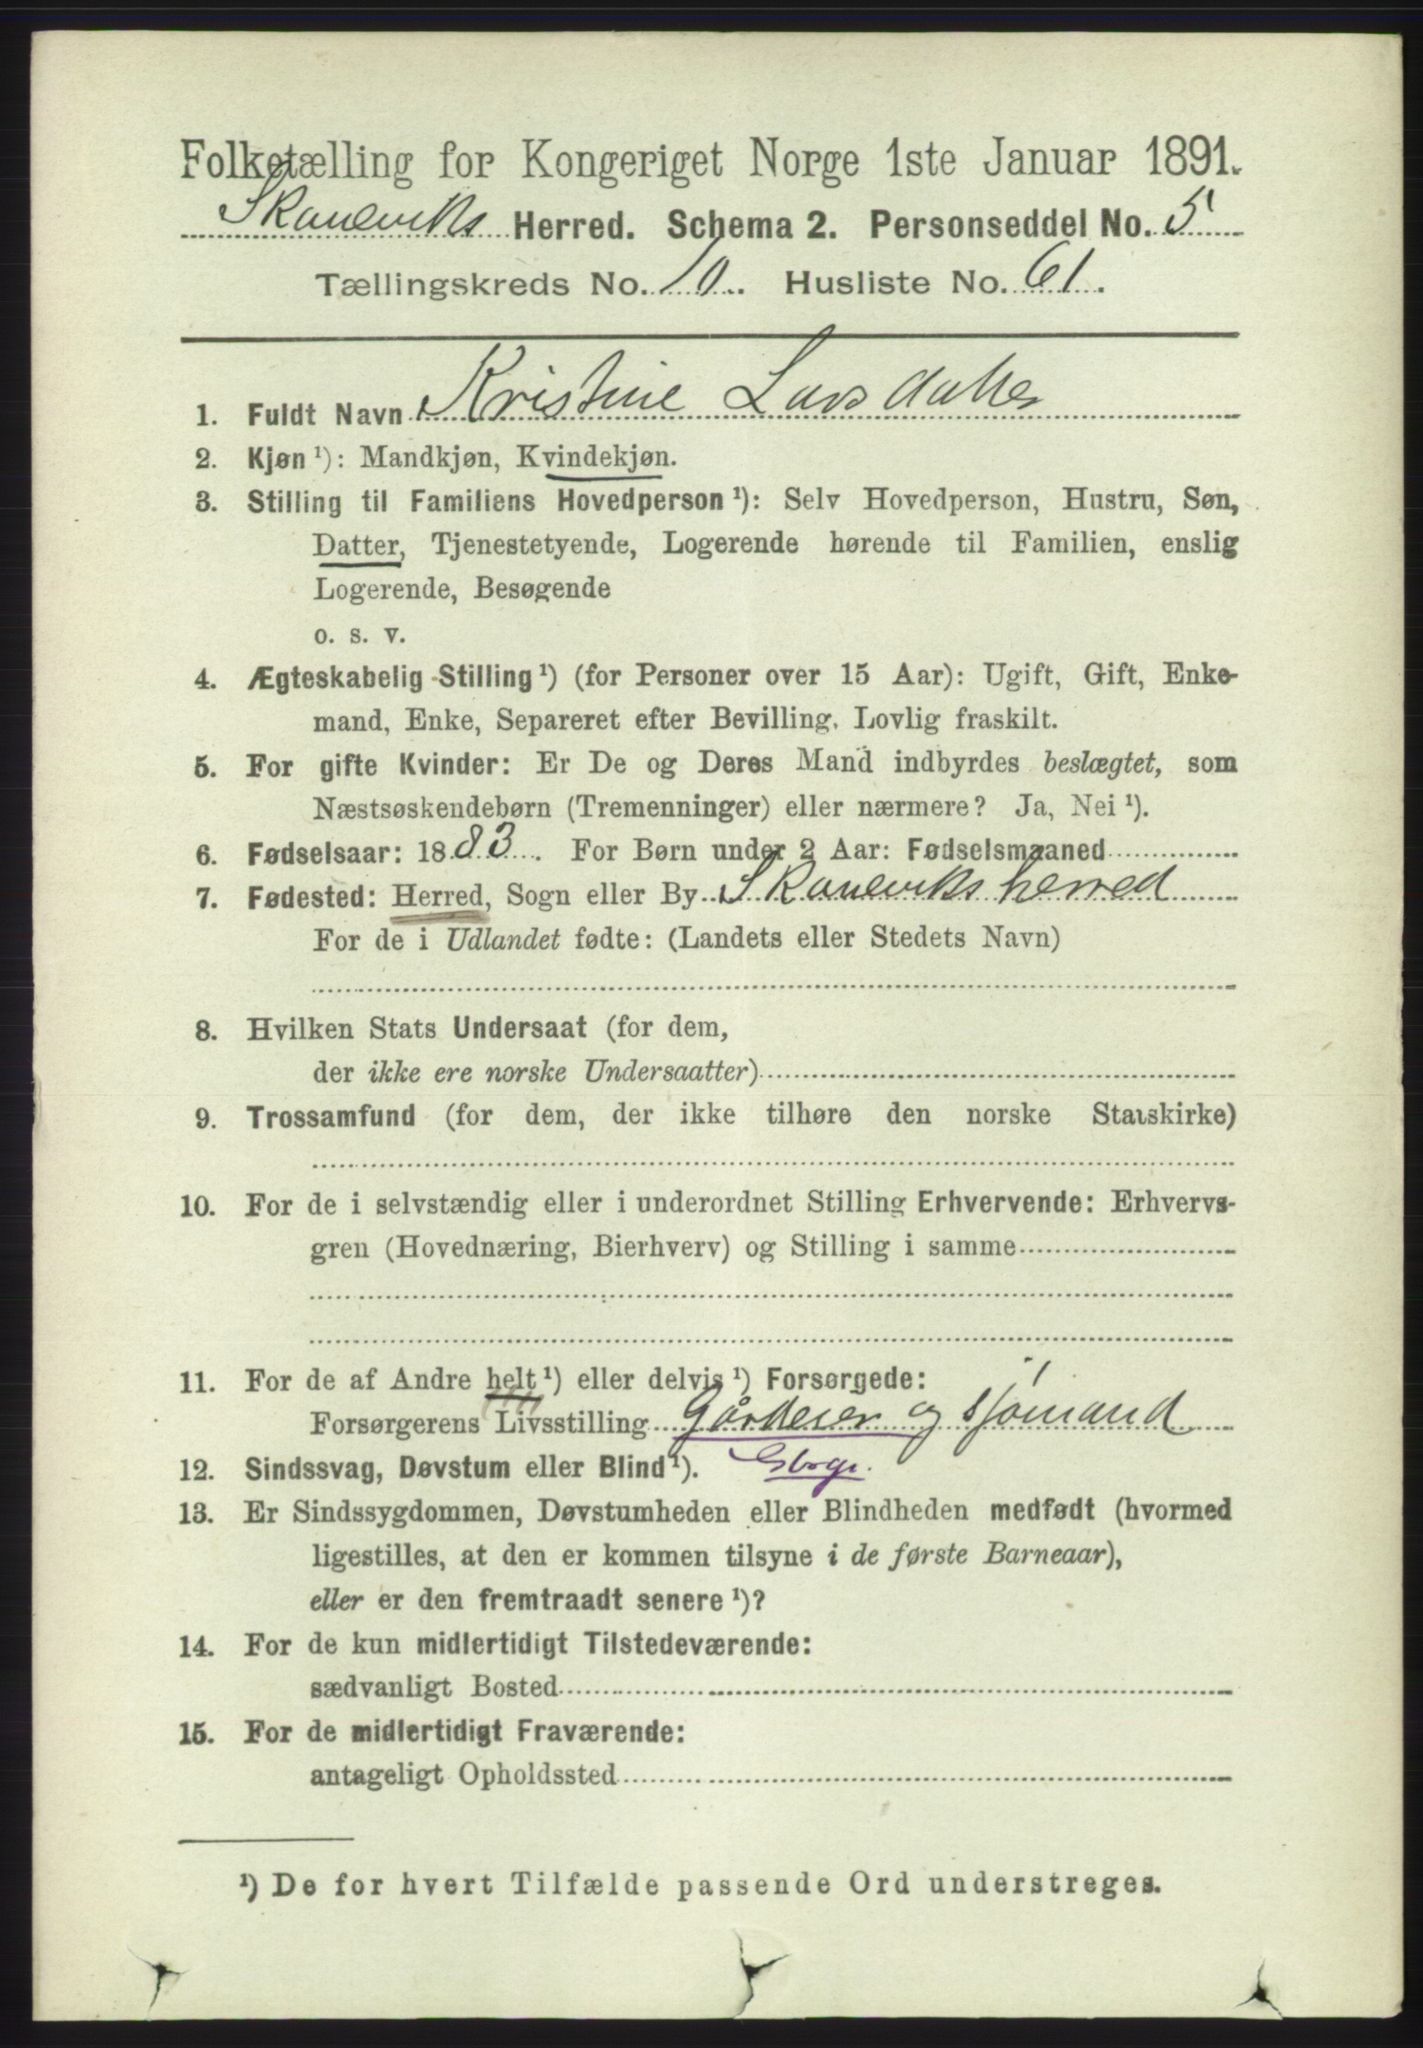 Folketælling for Kongeriget Norge 1ste Januar 1891.
Skaneviks Herred. Schema 2. Personseddel No. 5
Tællingskreds No. 10. Husliste No. 61.
1. Fuldt Navn Kristine Larsdatter
2. Kjøn ¹): Mandkjøn, Kvindekjøn.
3. Stilling til Familiens Hovedperson ¹): Selv Hovedperson, Hustru, Søn,
Datter, Tjenestetyende, Logerende hørende til Familien, enslig
Logerende, Besøgende
o. s. v.
4. Ægteskabelig Stilling ¹) (for Personer over 15 Aar): Ugift, Gift, Enke-
mand, Enke, Separeret efter Bevilling. Lovlig fraskilt.
5. For gifte Kvinder: Er De og Deres Mand indbyrdes beslægtet, som
Næstsøskendebørn (Tremenninger) eller nærmere? Ja, Nei ¹).
6. Fødselsaar: 1883. For Børn under 2 Aar: Fødselsmaaned
7. Fødested: Herred, Sogn eller By Skaneviks herred
For de i Udlandet fødte: (Landets eller Stedets Navn)
8. Hvilken Stats Undersaat (for dem,
der ikke ere norske Undersaatter)
9. Trossamfund (for dem, der ikke tilhøre den norske Statskirke)
10. For de i selvstændig eller i underordnet Stilling Erhvervende: Erhvervs-
gren (Hovednæring, Bierhverv) og Stilling i samme
11. For de af Andre helt ¹) eller delvis ¹) Forsørgede:
Forsørgerens Livsstilling Gårdeier og sjømand
12. Sindssvag, Døvstum eller Blind ¹).
13. Er Sindssygdommen, Døvstumheden eller Blindheden medfødt (hvormed
ligestilles, at den er kommen tilsyne i de første Barneaar),
eller er den fremtraadt senere ¹)?
14. For de kun midlertidigt Tilstedeværende:
sædvanligt Bosted
15. For de midlertidigt Fraværende:
antageligt Opholdssted
¹) De for hvert Tilfælde passende Ord understreges.